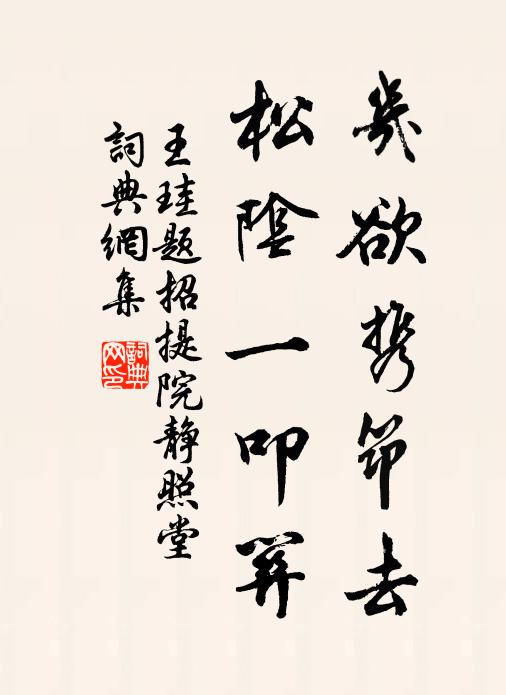 幾欲携筇去
松陰一叩關
王珪題招提院静照堂
詞典網集
詞典
网印